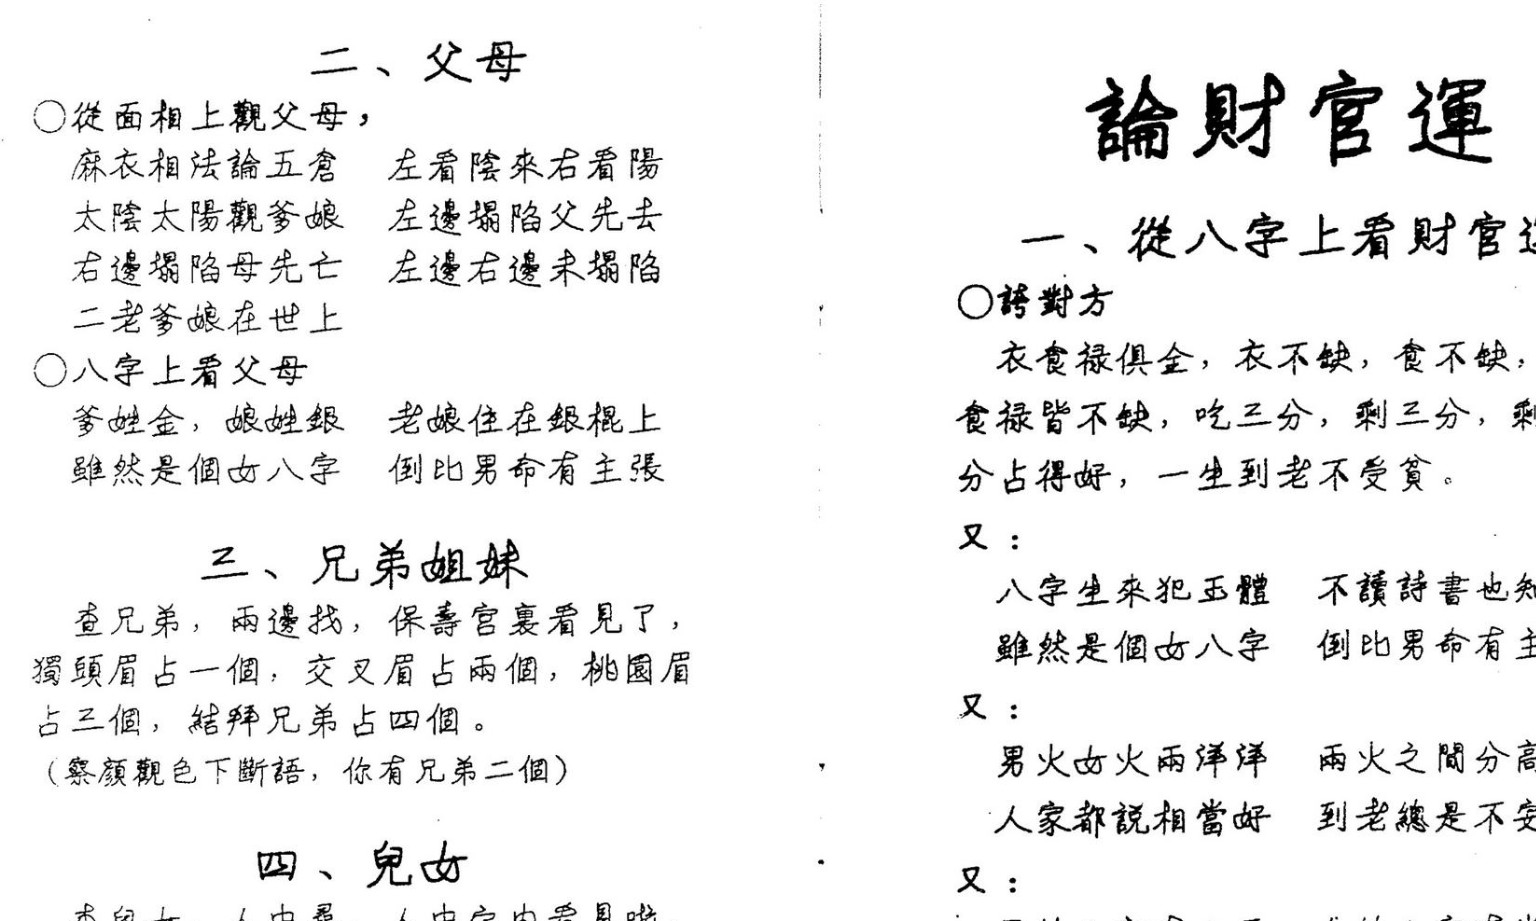 二、父母
○從面相上觀父母，
麻衣相法論五倉 左看陰來右看陽
太陰太陽觀爹娘 左邊塌陷父先去
右邊塌陷母先亡 左邊右邊未塌陷
二老爹娘在世上
○八字上看父母
爹姓金，娘姓銀 老娘住在銀棍上
雖然是個女八字 倒比男命有主張
三、兄弟姐妹
查兄弟，兩邊找，保壽宮裏看見了，
獨頭眉占一個，交叉眉占兩個，桃園眉
占三個，結拜兄弟占四個。
（察顏觀色下斷語，你有兄弟二個）
四、兒女
查兒女，人中尋，人中宮内看見啦，
論財官運
一、從八字上看財官運
○誇對方
衣食禄俱全，衣不缺，食不缺，
食禄皆不缺，吃三分，剩三分，剩
分占得好，一生到老不受貧。
又：
八字生來犯玉體 不讀詩書也知
雖然是個女八字 倒比男命有主
又：
男火女火兩洋洋 兩火之間分高
人家都説相當好 到老總是不安
又：